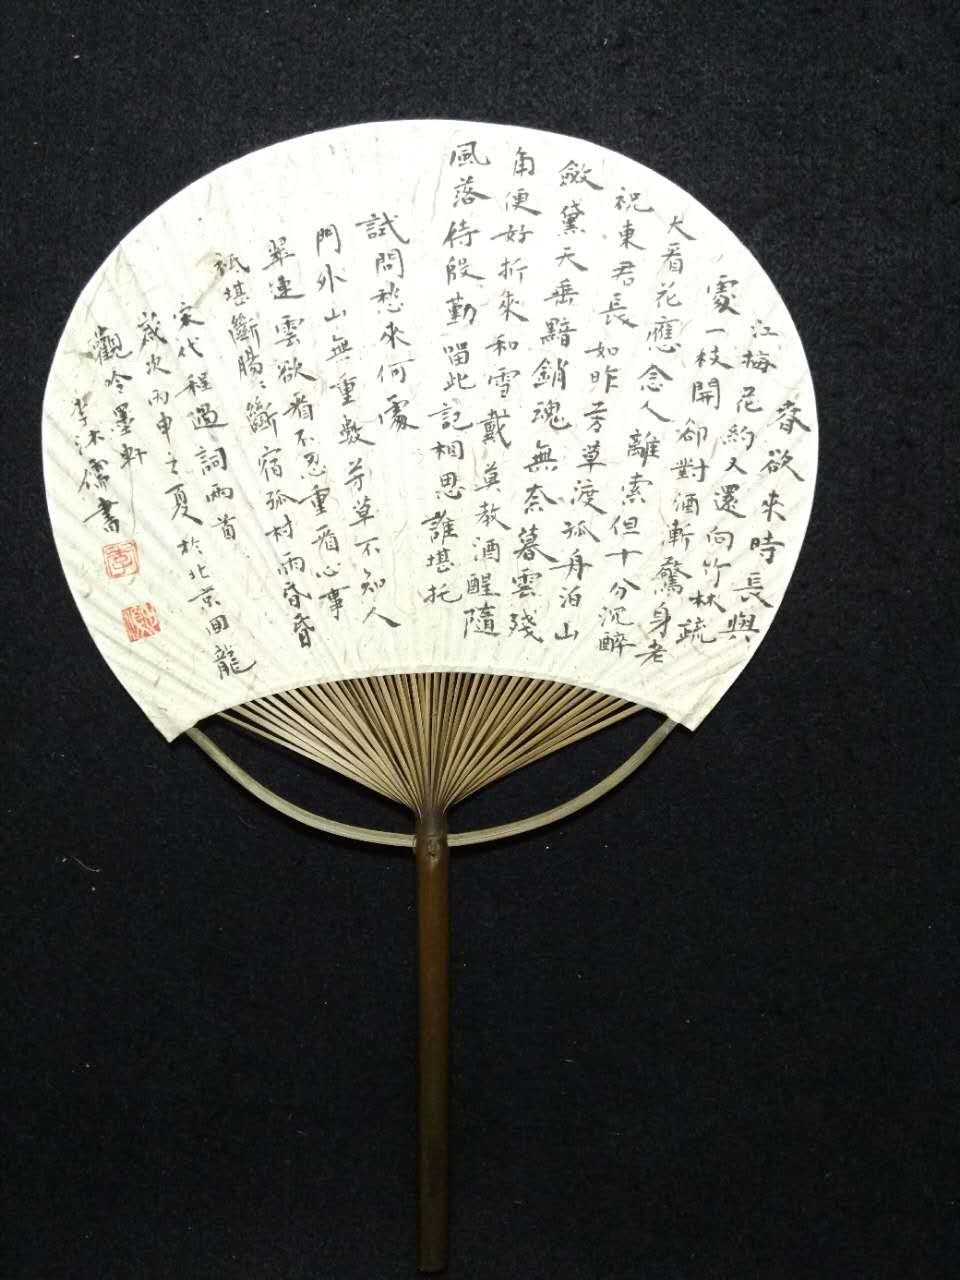 春欲來時長與
江梅花約又還向竹林疏
處一枝開卻對酒斬驚身老
大看花應念人離索但十分沉醉
祝東君長如昨芳草渡孤舟泊山
斂黛天垂黯銷魂無奈暮雲殘
角便好折來和雪戴莫教酒醒隨
風落待殷勤留此記相思誰堪托
試問愁來何處
門外山無重數芳草不知人
翠連雲欲看不忍重看心事
祇堪斷腸〻斷宿孤村雨昏昏
宋代程過詞兩首
歲次丙申之夏於北京回龍
觀吟墨軒
李沐儒書
李